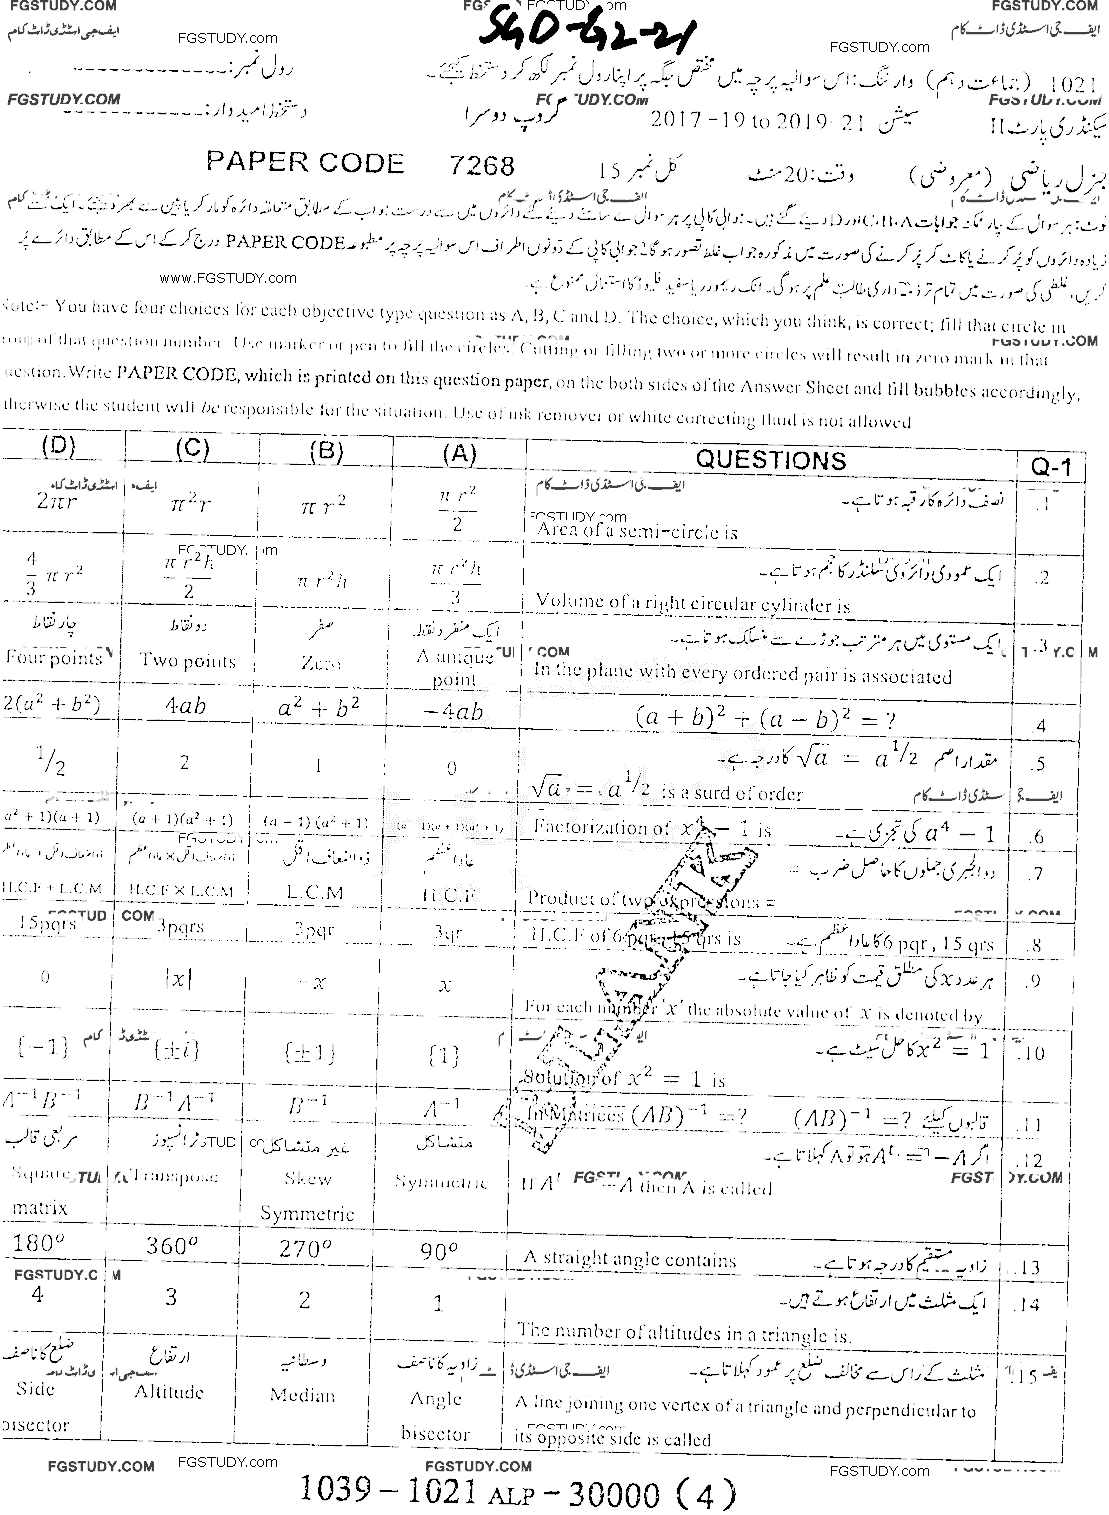 FGSTUDY.COM FGSTUDY.com FGSTUDY.COM
SGD-G2-21
ایف جی اسٹڈی ڈاٹ کام FGSTUDY.com FGSTUDY.com ایف جی اسٹڈی ڈاٹ کام
1021 (جماعت دہم) وارننگ: اس سوالیہ پرچہ میں مختص جگہ پر اپنا رول نمبر لکھ کر دستخط کیجئے۔ رول نمبر:
FGSTUDY.COM FGSTUDY.COM FGSTUDY.COM
سیکنڈری پارٹ II سیشن 2017-19 to 2019-21 گروپ دوسرا دستخط امیدوار:
جنرل ریاضی (معروضی) وقت: 20 منٹ کل نمبر 15 PAPER CODE 7268
ایف جی اسٹڈی ڈاٹ کام
نوٹ: ہر سوال کے چار ممکنہ جوابات A، B، C اور D دیئے گئے ہیں۔ جوابی کاپی پر ہر سوال کے سامنے دیئے گئے دائروں میں سے درست جواب کے مطابق متعلقہ دائرہ کو مارکر یا پین سے بھر دیجئے۔ ایک سے
زیادہ دائروں کو پُر کرنے یا کاٹ کر پُر کرنے کی صورت میں مذکورہ جواب غلط تصور ہوگا 2 جوابی کاپی کے دونوں اطراف اس سوالیہ پرچہ پر مطبوعہ PAPER CODE درج کر کے اس کے مطابق دائرے پُر
کریں، غلطی کی صورت میں تمام تر ذمہ داری طالب علم پر ہوگی۔ انک ریموور یا سفید فلیوڈ کا استعمال ممنوع ہے۔
www.FGSTUDY.com
Note:- You have four choices for each objective type question as A, B, C and D. The choice, which you think, is correct; fill that circle in
front of that question number. Use marker or pen to fill the circles. Cutting or filling two or more circles will result in zero mark in that
question. Write PAPER CODE, which is printed on this question paper, on the both sides of the Answer Sheet and fill bubbles accordingly,
otherwise the student will be responsible for the situation. Use of ink remover or white correcting fluid is not allowed
(D) (C) (B) (A) QUESTIONS Q-1
نصف دائرہ کا رقبہ ہوتا ہے۔ .1
2πr π²r πr² πr²/2 Area of a semi-circle is
ایک عمودی دائروی سلنڈر کا حجم ہوتا ہے۔ .2
4/3 πr² πr²h/2 πr²h πr²h/3 Volume of a right circular cylinder is
چار نقاط دو نقاط صفر ایک منفرد نقطہ ایک مستوی میں ہر مترتب جوڑے سے منسلک ہوتا ہے۔ .3
Four points Two points Zero A unique point In the plane with every ordered pair is associated
2(a² + b²) 4ab a² + b² −4ab (a + b)² + (a − b)² = ? .4
مقدار اصم √a = a^1/2 کا درجہ ہے۔ .5
1/2 2 1 0 √a = a^1/2 is a surd of order
(a² + 1)(a + 1) (a + 1)(a² + 1) (a − 1)(a² + 1) Factorization of x⁴ − 1 is a⁴ − 1 کی تجزی ہے۔ .6
ذواضعاف اقل + عاداعظم ذواضعاف اقل × عاداعظم ذواضعاف اقل عاداعظم دو الجبری جملوں کا حاصل ضرب = .7
H.C.F + L.C.M H.C.F × L.C.M L.C.M H.C.F Product of two expressions =
15pqrs 3pqrs 3pqr 3qr H.C.F of 6pqr, 15 qrs is 6 pqr, 15 qrs کا عاداعظم ہے۔ .8
ہر عدد x کی مطلق قیمت کو ظاہر کیا جاتا ہے۔ .9
0 |x| −x x For each number 'x' the absolute value of x is denoted by
x² = 1 کا حل سیٹ ہے۔ .10
{−1} {±i} {±1} {1} Solution of x² = 1 is
A⁻¹B⁻¹ B⁻¹A⁻¹ B⁻¹ A⁻¹ In Matrices (AB)⁻¹ = ? (AB)⁻¹ = ? قالبوں کیلئے .11
مربعی قالب ٹرانسپوز غیر متشاکل متشاکل اگر Aᵗ = −A ہو تو A کہلاتا ہے۔ .12
Square matrix Transpose Skew Symmetric Symmetric If Aᵗ = −A then A is called
180° 360° 270° 90° A straight angle contains زاویہ مستقیم کا درجہ ہوتا ہے۔ .13
ایک مثلث میں ارتفاع ہوتے ہیں۔ .14
4 3 2 1 The number of altitudes in a triangle is.
ضلع کا ناصف ارتفاع وسطانیہ زاویہ کا ناصف مثلث کے راس سے مخالف ضلع پر عمود کہلاتا ہے۔ .15
Side bisector Altitude Median Angle bisector A line joining one vertex of a triangle and perpendicular to
its opposite side is called
FGSTUDY.COM FGSTUDY.com FGSTUDY.COM FGSTUDY.com
1039 – 1021 ALP – 30000 (4)